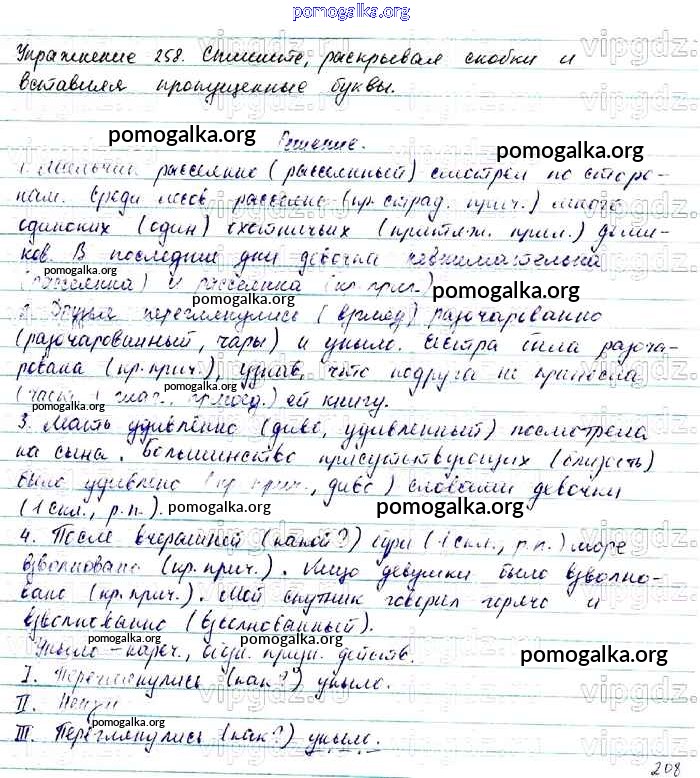 pomogalka.org
Упражнение 258. Спишите, раскрывая скобки и
вставляя пропущенные буквы.
pomogalka.org
Решение.
pomogalka.org
1. Мальчик рассеянно (рассеянный) смотрел по сторо-
нам. Среди лесов рассеяно (кр. страд. прич.) много
одиноких (один) охотничьих (притяж. прил.) доми-
ков. В последние дни девочка невнимательна
(рассеянна) и рассеянна (кр. прил.)
pomogalka.org
pomogalka.org
2. Друзья переглянулись (взгляд) разочарованно
(разочарованный, чары) и уныло. Сестра была разоча-
рована (кр. прич.), узнав, что подруга не принесла
(част. глаг.) ей книгу.
pomogalka.org
pomogalka.org
3. Мать удивлённо (диво, удивленный) посмотрела
на сына. Большинство присутствующих (близость)
было удивлено (кр. прич., диво) словами девочки
(1 скл., р.п.)
pomogalka.org
pomogalka.org
pomogalka.org
4. После вчерашней (какой?) бури (1 скл., р.п.) море
взволновано (кр. прич.). Лицо девушки было взволно-
вано (кр. прич.). Мой спутник говорил горячо и
взволнованно (взволнованный).
pomogalka.org
Уныло – нареч., обозн. призн. действ.
pomogalka.org
I. Переглянулись (как?) уныло.
pomogalka.org
II. Неизм
pomogalka.org
III. Переглянулись (как?) уныло.
pomogalka.org
208